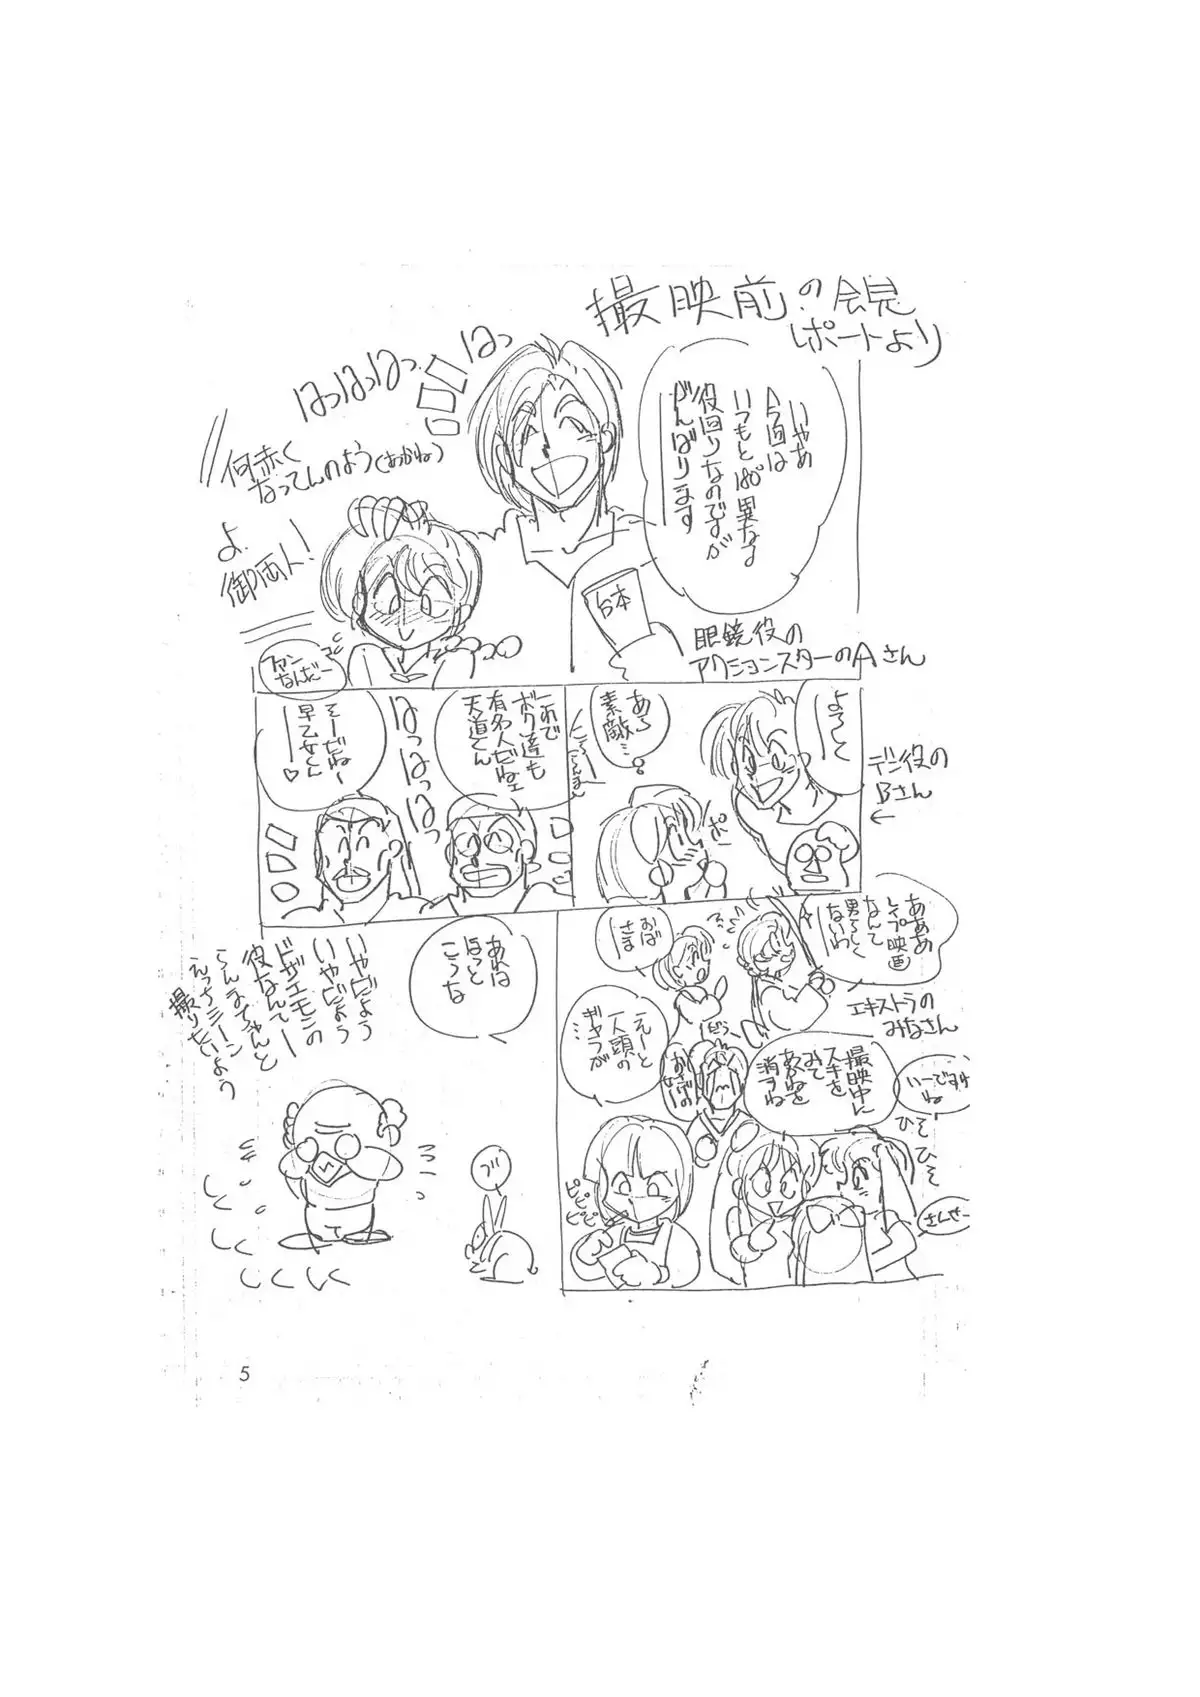 撮映前の会見
レポートより
いやあ
今回は
いつもと180°異なる
役回りなのですが
がんばります
はっはっはっはっ
何赤く
なってんのよう(あかね)
よ
御両人!
ファン
なんだー
台本
眼鏡役の
アクションスターのAさん
よろしく
デブ役の
Bさん
←
あら
素敵…
ポ
これで
ボク達も
有名人だねェ
天道くん
はっはっはっ
そーだねー
早乙女くん
♡
あああ
レイプ映画
なんて
男らしく
ないわ
おば
さま
エキストラの
みなさん
えーと
一人頭の
ギャラが
…
どうー
撮映中に
スキを
みて
あかねを
消すね
いーですわ
ね
ひそひそ
さんせー
ピピピ
ピピ
あれは
ほっと
こうな
いやだよう
いやだよう
ドザエモンの
役なんてー
らんまちゃんと
えっちシーン
撮りたいよう
5